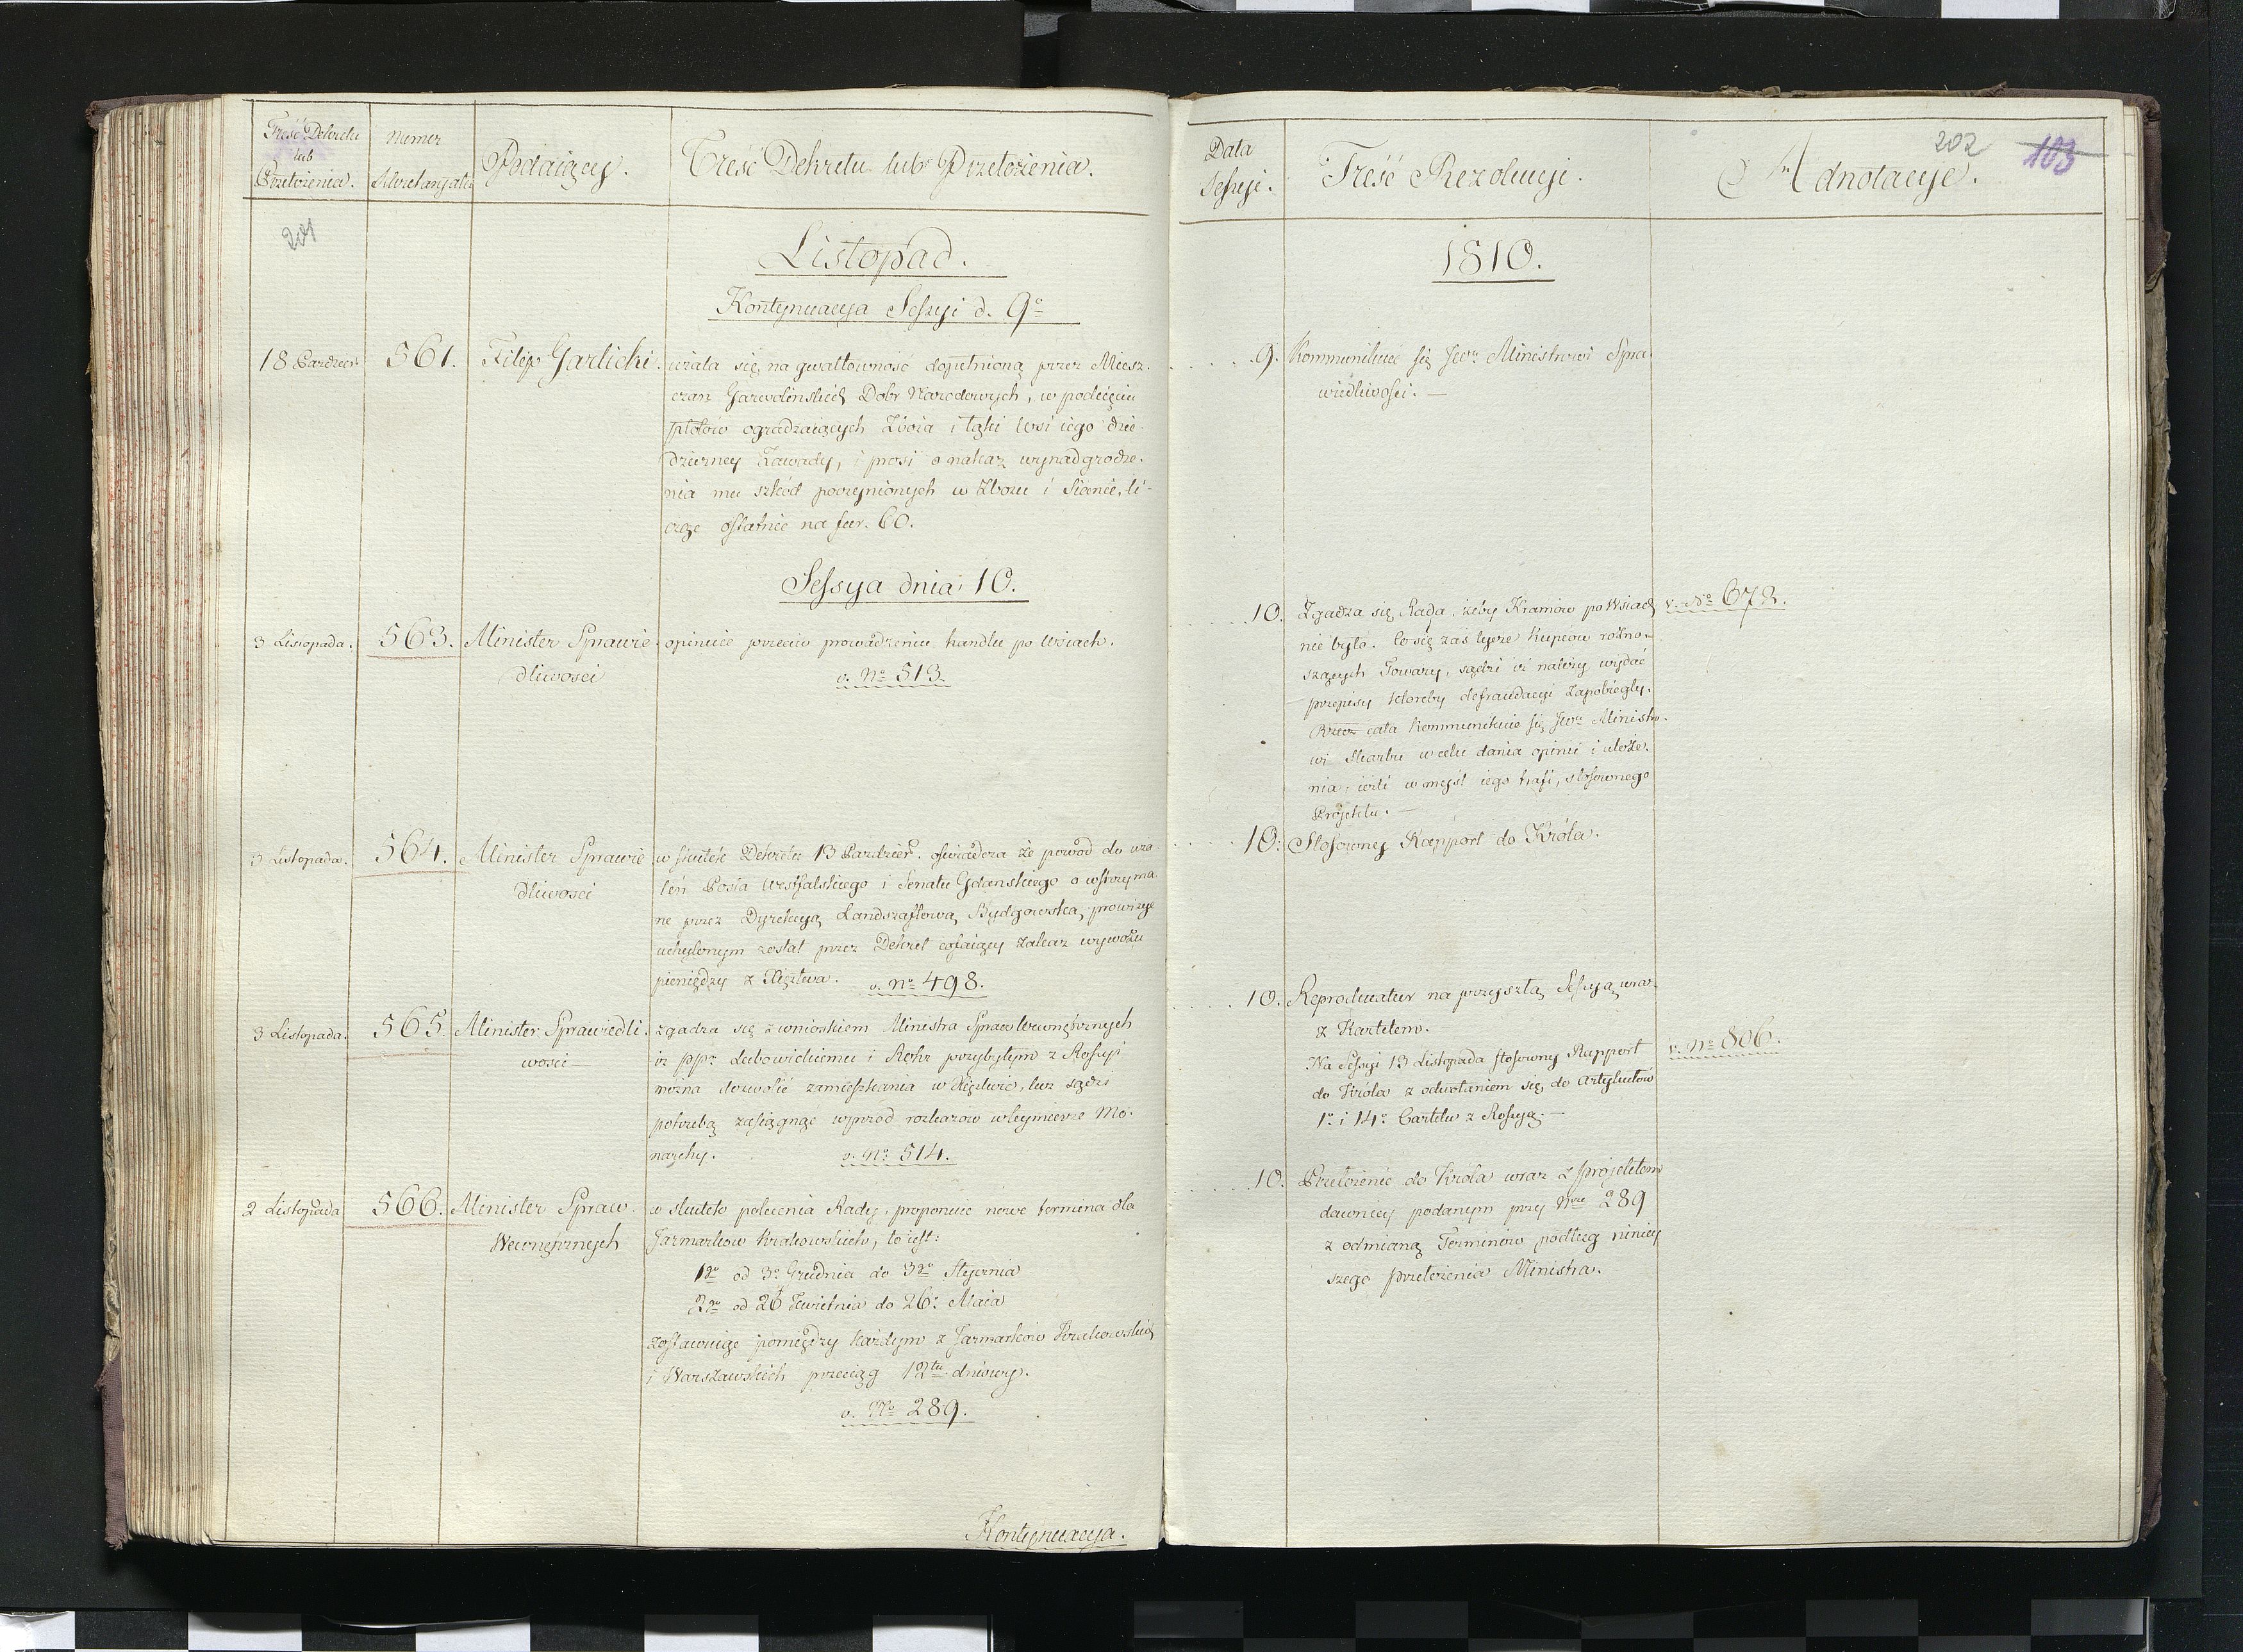 Treść Dekretu
lub
Przełożenia.
Numer
Sekretaryatu
Podaiący.
Treść Dekretu lub Przełożenia.
201
Listopad.
Kontynuacya Sessyi d. 9º
18 Paździer.
561.
Filip Garlicki.
użala się na gwałtowność dopełnioną przez Miesz-
czan Garwolinskich Dobr Narodowych, w podcięciu
płotow ogradzaiących Zboża i łąki wsi iego dzie-
dziczney Zawady, i prosi o nakaz wynadgrodze-
nia mu szkód poczynionych w Zbożu i Sianie, li-
cząc ostatnie na fur. 60.
Sessya dnia 10.
3 Listopada.
563.
Minister Sprawie-
dliwosci
opiniuie przeciw prowadzeniu handlu po Wsiach.
v. Nº 513.
3 Listopada.
564.
Minister Sprawie
dliwosci
w skutek Dekretu 13 Paździer. oswiadcza że powod do uża-
leń Posła Westfalskiego i Senatu Gdanskiego o wstrzyma
ne przez Dyrekcyą Landszaftową Bydgowską prowizye
uchylonym został przez Dekret cofaiący zakaz wywozu
pieniędzy z Xięztwa.
v. Nº 498.
3 Listopada.
565.
Minister Sprawiedli-
wosci
zgadza się z wnioskiem Ministra Spraw Wewnętrznych
iż PPm Lubowickiemu i Rohr przybyłym z Rossyi
można dozwolić zamieszkania w Xięztwie, lecz sądzi
potrzebą zasiągnąc wprzod rozkazow w teymierze Mo-
narchy.
v. Nº 514.
2 Listopada
566.
Minister Spraw
Wewnętrznych
w skutek polecenia Rady, proponuie nowe termina dla
Jarmarkow Krakowskich, to iest:
1mo od 3º Grudnia do 3go Stycznia
2do od 26 Kwietnia do 26º Maia
zostawuiąc pomiędzy każdym z Jarmarków Krakowskich
i Warszawskich przeciąg 12tu dniowy.
v. Nº 289.
Kontynuacya.
Data
Sessyi.
Treść Rezolucyi.
Adnotacye.
202
103
1810.
9.
Kommunikuie się Jwu Ministrowi Spra-
wiedliwosci.
10.
Zgadza się Rada, żeby Kramow po Wsiach
nie było. Co się zaś tycze Kupcow rozno-
szących Towary, sądzi iż należy wydać
przepisy któreby defraudacyi zapobiegły.
Rzecz cała kommunikuie się Jwu Ministro-
wi Skarbu w celu dania opinii i ułoże-
nia, ieżli w myśl iego trafi, stosownego
Projektu.
v. Nº 678.
10.
Stosowny Rapport do Króla.
10.
Reproducatur na przyszłą Sessyą wraz
z Kartelem.
Na Sessyi 13 Listopada stosowny Rapport
do Króla z odwołaniem się do Artykułów
1º i 14º Cartelu z Rossyą.
v. Nº 806.
10.
Przełożenie do Króla wraz z projektem
dawniey podanym przy Nrze 289
z odmianą Terminów podług niniey
szego przełożenia Ministra.